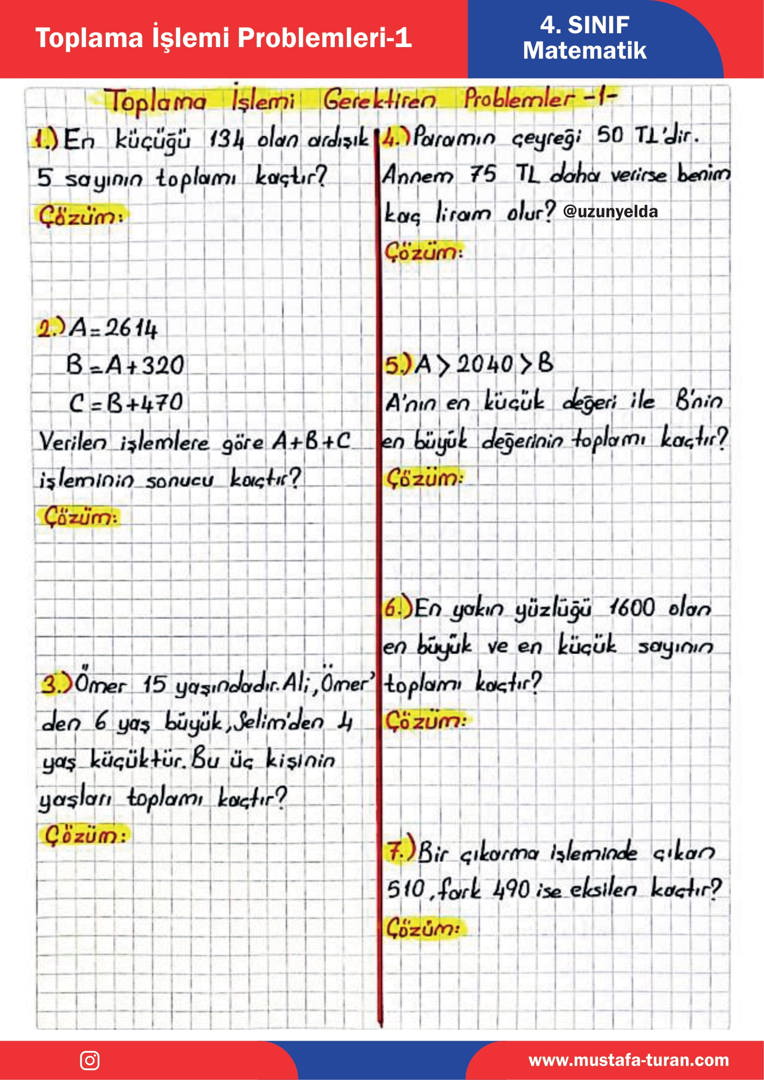 Toplama İşlemi Problemleri-1
4. SINIF
Matematik
Toplama İşlemi Gerektiren Problemler -1-
1.) En küçüğü 134 olan ardışık
5 sayının toplamı kaçtır?
Çözüm:
2.) A=2614
B=A+320
C=B+470
Verilen işlemlere göre A+B+C
işleminin sonucu kaçtır?
Çözüm:
3.) Ömer 15 yaşındadır. Ali, Ömer'
den 6 yaş büyük, Selim'den 4
yaş küçüktür. Bu üç kişinin
yaşları toplamı kaçtır?
Çözüm:
4.) Paramın çeyreği 50 TL'dir.
Annem 75 TL daha verirse benim
kaç liram olur? @uzunyelda
Çözüm:
5.) A > 2040 > B
A'nın en küçük değeri ile B'nin
en büyük değerinin toplamı kaçtır?
Çözüm:
6.) En yakın yüzlüğü 1600 olan
en büyük ve en küçük sayının
toplamı kaçtır?
Çözüm:
7.) Bir çıkarma işleminde çıkan
510, fark 490 ise eksilen kaçtır?
Çözüm:
www.mustafa-turan.com